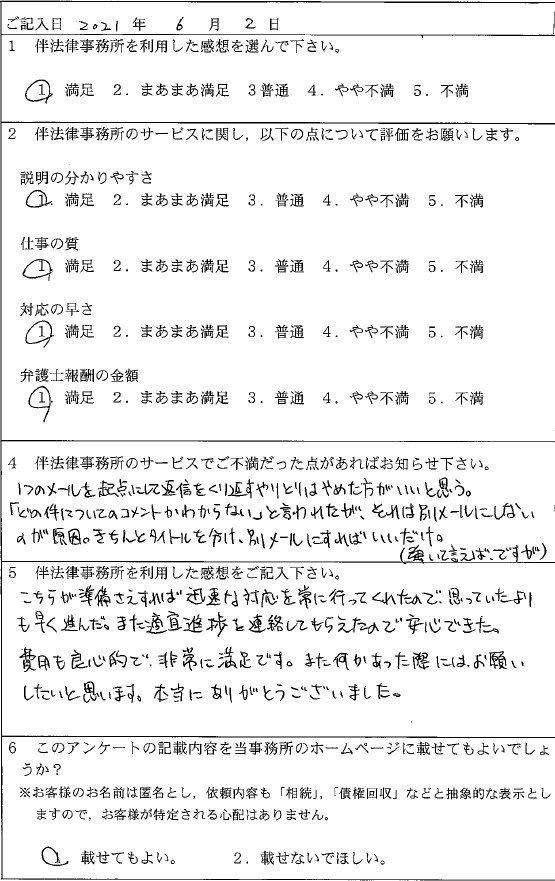 ご記入日 2021 年 6 月 2 日
1 伴法律事務所を利用した感想を選んで下さい。
1. 満足 2．まあまあ満足 3 普通 4．やや不満 5．不満
2 伴法律事務所のサービスに関し，以下の点について評価をお願いします。
説明の分かりやすさ
1. 満足 2．まあまあ満足 3．普通 4．やや不満 5．不満
仕事の質
1. 満足 2．まあまあ満足 3．普通 4．やや不満 5．不満
対応の早さ
1. 満足 2．まあまあ満足 3．普通 4．やや不満 5．不満
弁護士報酬の金額
1. 満足 2．まあまあ満足 3．普通 4．やや不満 5．不満
4 伴法律事務所のサービスでご不満だった点があればお知らせ下さい。
1つのメールを起点にして返信をくり返すやりとりはやめた方がいいと思う。
「どの件についてのコメントかわからない」と言われたが、それは別メールにしない
のが原因。きちんとタイトルを分け、別メールにすればいいだけ。
(強いて言えば、ですが)
5 伴法律事務所を利用した感想をご記入下さい。
こちらが準備さえすれば迅速な対応を常に行ってくれたので、思っていたより
も早く進んだ。また適宜進捗を連絡してもらえたので安心できた。
費用も良心的で、非常に満足です。また何かあった際にはお願い
したいと思います。本当にありがとうございました。
6 このアンケートの記載内容を当事務所のホームページに載せてもよいでしょ
うか？
※お客様のお名前は匿名とし，依頼内容も「相続」，「債権回収」などと抽象的な表示とし
ますので，お客様が特定される心配はありません。
1. 載せてもよい。 2．載せないでほしい。